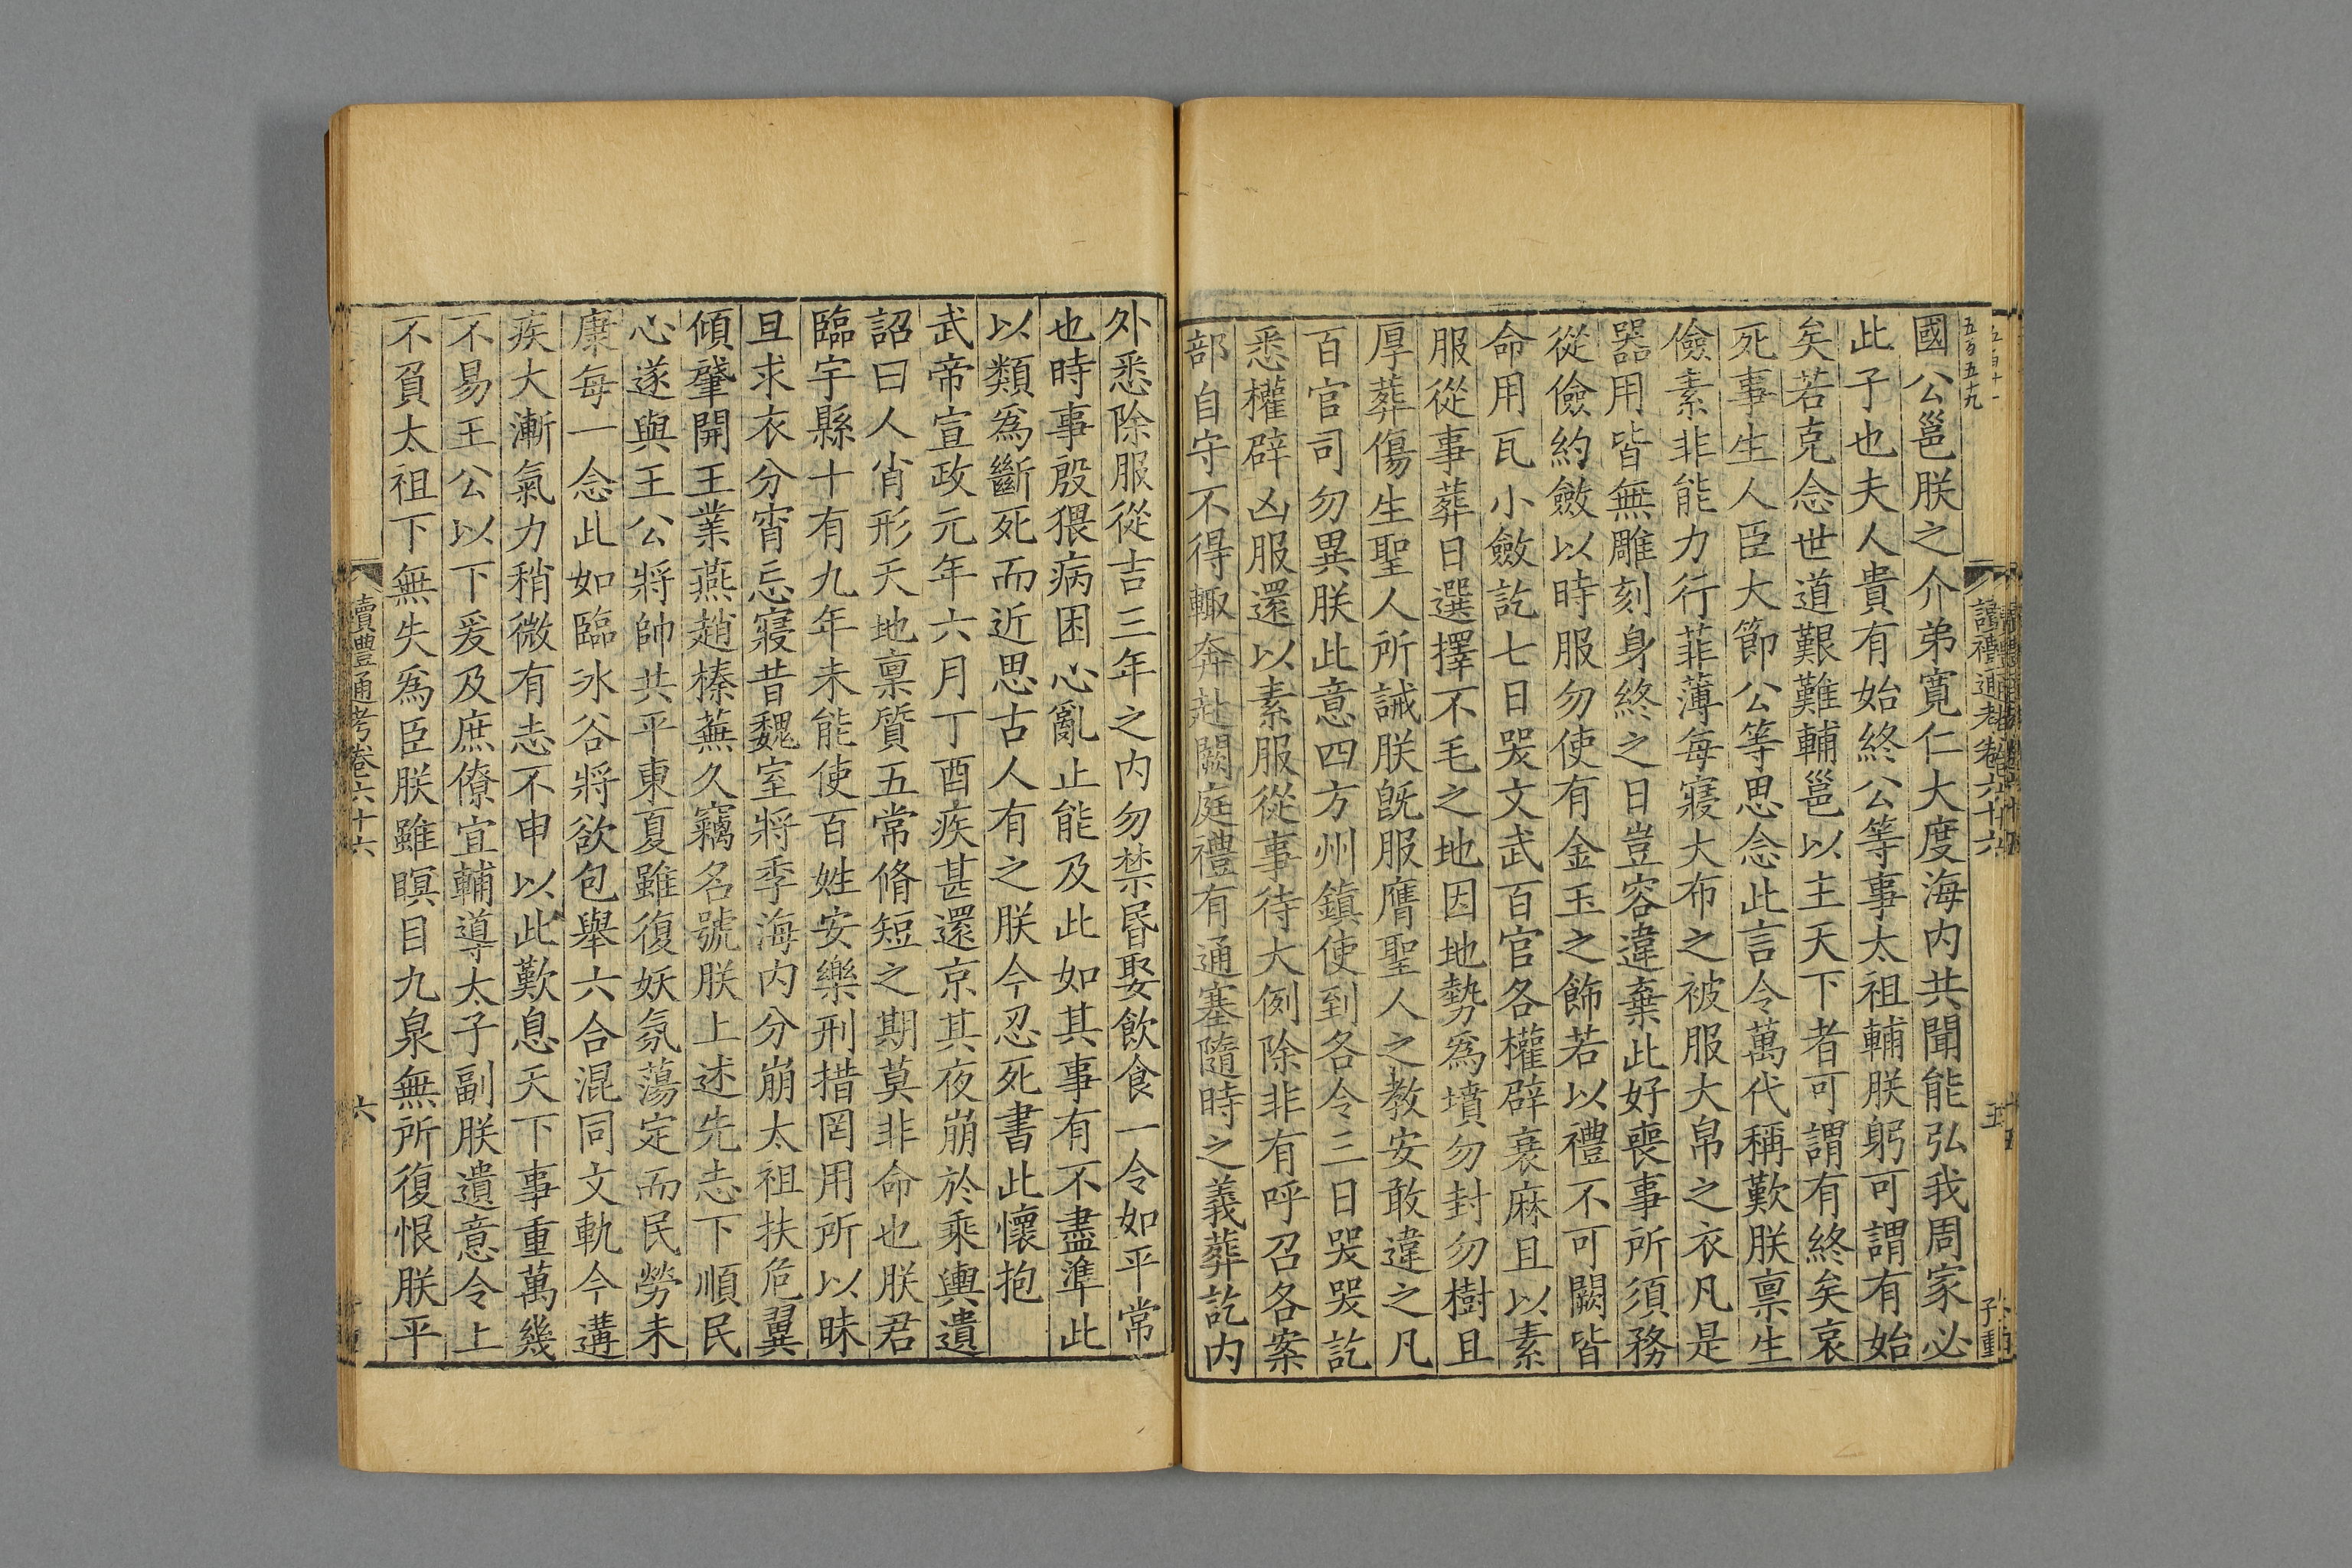 五百五九
讀禮通考卷六十六
五
子重
國公邕朕之介弟寬仁大度海内共聞能弘我周家必
此子也夫人貴有始終公等事太祖輔朕躬可謂有始
矣若克念世道艱難輔邕以主天下者可謂有終矣哀
死事生人臣大節公等思念此言令萬代稱歎朕禀生
儉素非能力行菲薄每寢大布之被服大帛之衣凡是
器用皆無雕刻身終之日豈容違棄此好喪事所須務
從儉約斂以時服勿使有金玉之飾若以禮不可闕皆
命用瓦小斂訖七日哭文武百官各權辟衰麻且以素
服從事葬日選擇不毛之地因地勢爲墳勿封勿樹且
厚葬傷生聖人所誡朕旣服膺聖人之教安敢違之凡
百官司勿異朕此意四方州鎮使到各令三日哭哭訖
悉權辟凶服還以素服從事待大例除非有呼召各案
部自守不得輙奔赴闕庭禮有通塞隨時之義葬訖内
外悉除服從吉三年之内勿禁昏娶飲食一令如平常
也時事殷猥病困心亂止能及此如其事有不盡準此
以類爲斷死而近思古人有之朕今忍死書此懷抱
武帝宣政元年六月丁酉疾甚還京其夜崩於乘輿遺
詔曰人肖形天地稟質五常脩短之期莫非命也朕君
臨宇縣十有九年未能使百姓安樂刑措罔用所以昧
旦求衣分宵忘寢昔魏室將季海内分崩太祖扶危翼
傾肇開王業燕趙榛蕪久竊名號朕上述先志下順民
心遂與王公將帥共平東夏雖復妖氛蕩定而民勞未
康每一念此如臨冰谷將欲包舉六合混同文軌今遘
疾大漸氣力稍微有志不申以此歎息天下事重萬幾
不易王公以下爰及庶僚宜輔導太子副朕遺意令上
不負太祖下無失爲臣朕雖瞑目九泉無所復恨朕平
讀禮通考卷六十六
六